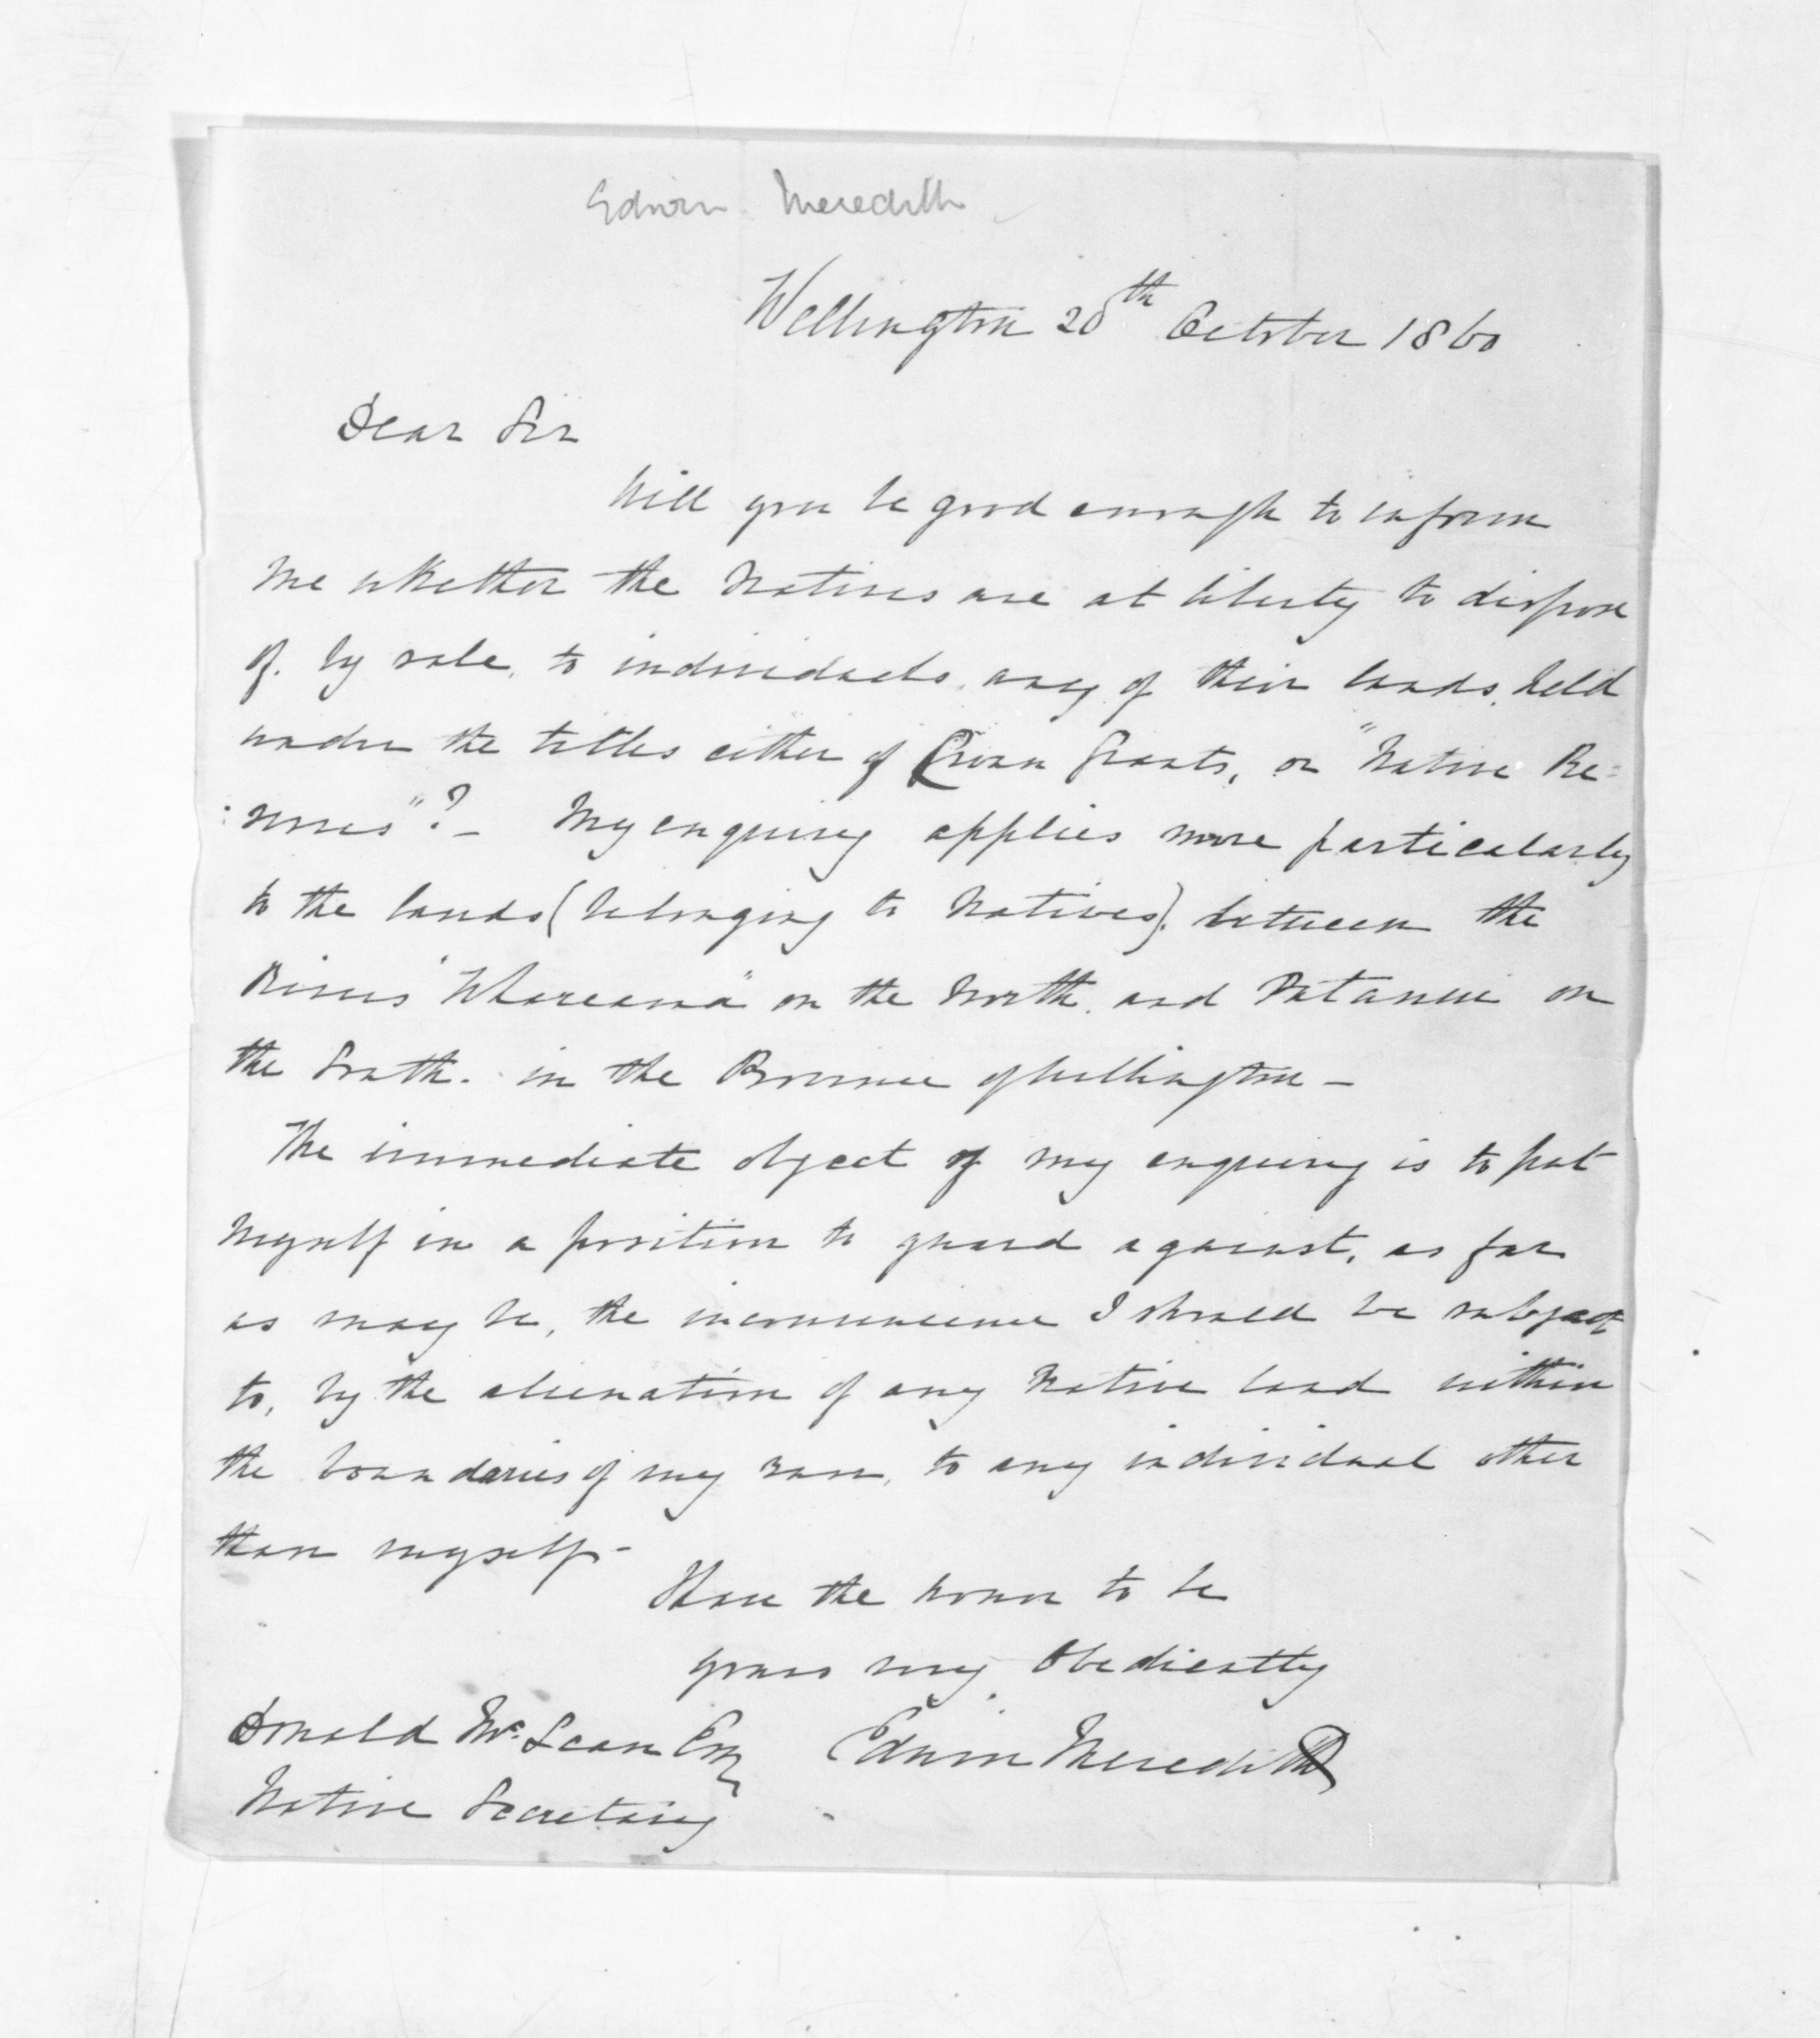 Edwin Meredith
Wellington 20th October 1860
Dear Sir
Will you be good enough to inform
me whether the Natives are at liberty to dispose
of. by sale, to individuals, any of their lands, held
under the titles either of Crown Grants, or "Native Re=
:serves"? - My enquiry applies more particularly
to the lands (belonging to Natives). between the
Rivers "Whareama" on the North. and Pataniu on
the South. in the Province of Wellington -
The immediate object of my enquiry is to put
myself in a position to guard against, as far
as may be, the inconvenience I should be subject
to, by the alienation of any Native land within
the boundaries of my run, to any individual other
than myself -
Have the honor to be
yours very Obediently
Donald McLean Esq Edwin Meredith
Native Secretary